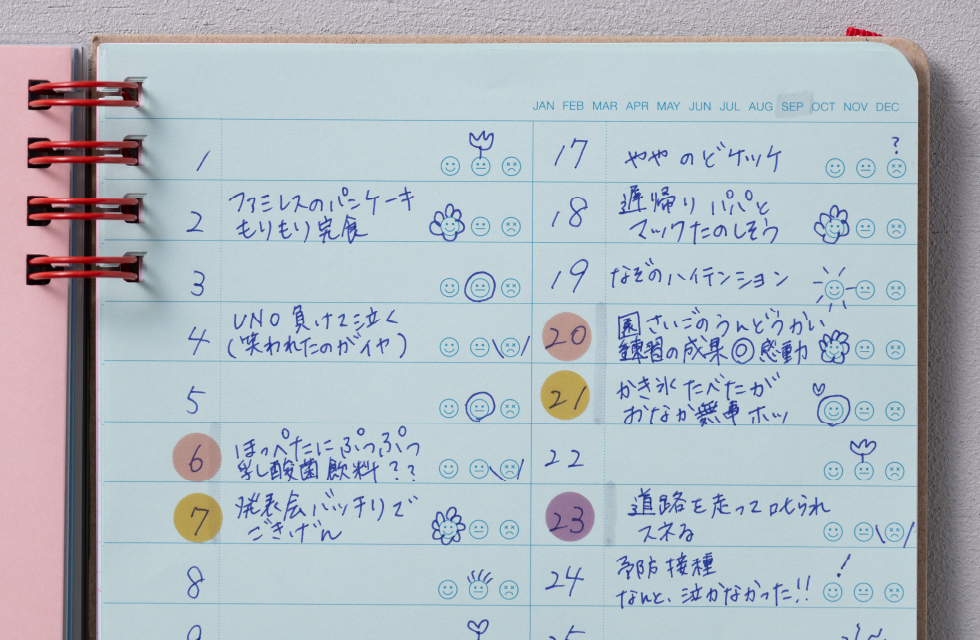 JAN FEB MAR APR MAY JUN JUL AUG SEP OCT NOV DEC
1
2 ファミレスのパンケーキ
もりもり完食
3
4 UNO負けて泣く
(笑われたのがイヤ)
5
6 ほっぺたにぷつぷつ
乳酸菌飲料??
7 発表会バッチリで
ごきげん
8
17 ややのどケッケ
?
18 遅帰り パパと
マックたのしそう
19 なぞのハイテンション
20 園 さいごのうんどうかい
練習の成果◎感動
21 かき氷たべたが
おなか無事ホッ
22
23 道路を走って叱られ
スネる
24 予防接種
なんと、泣かなかった!!
!